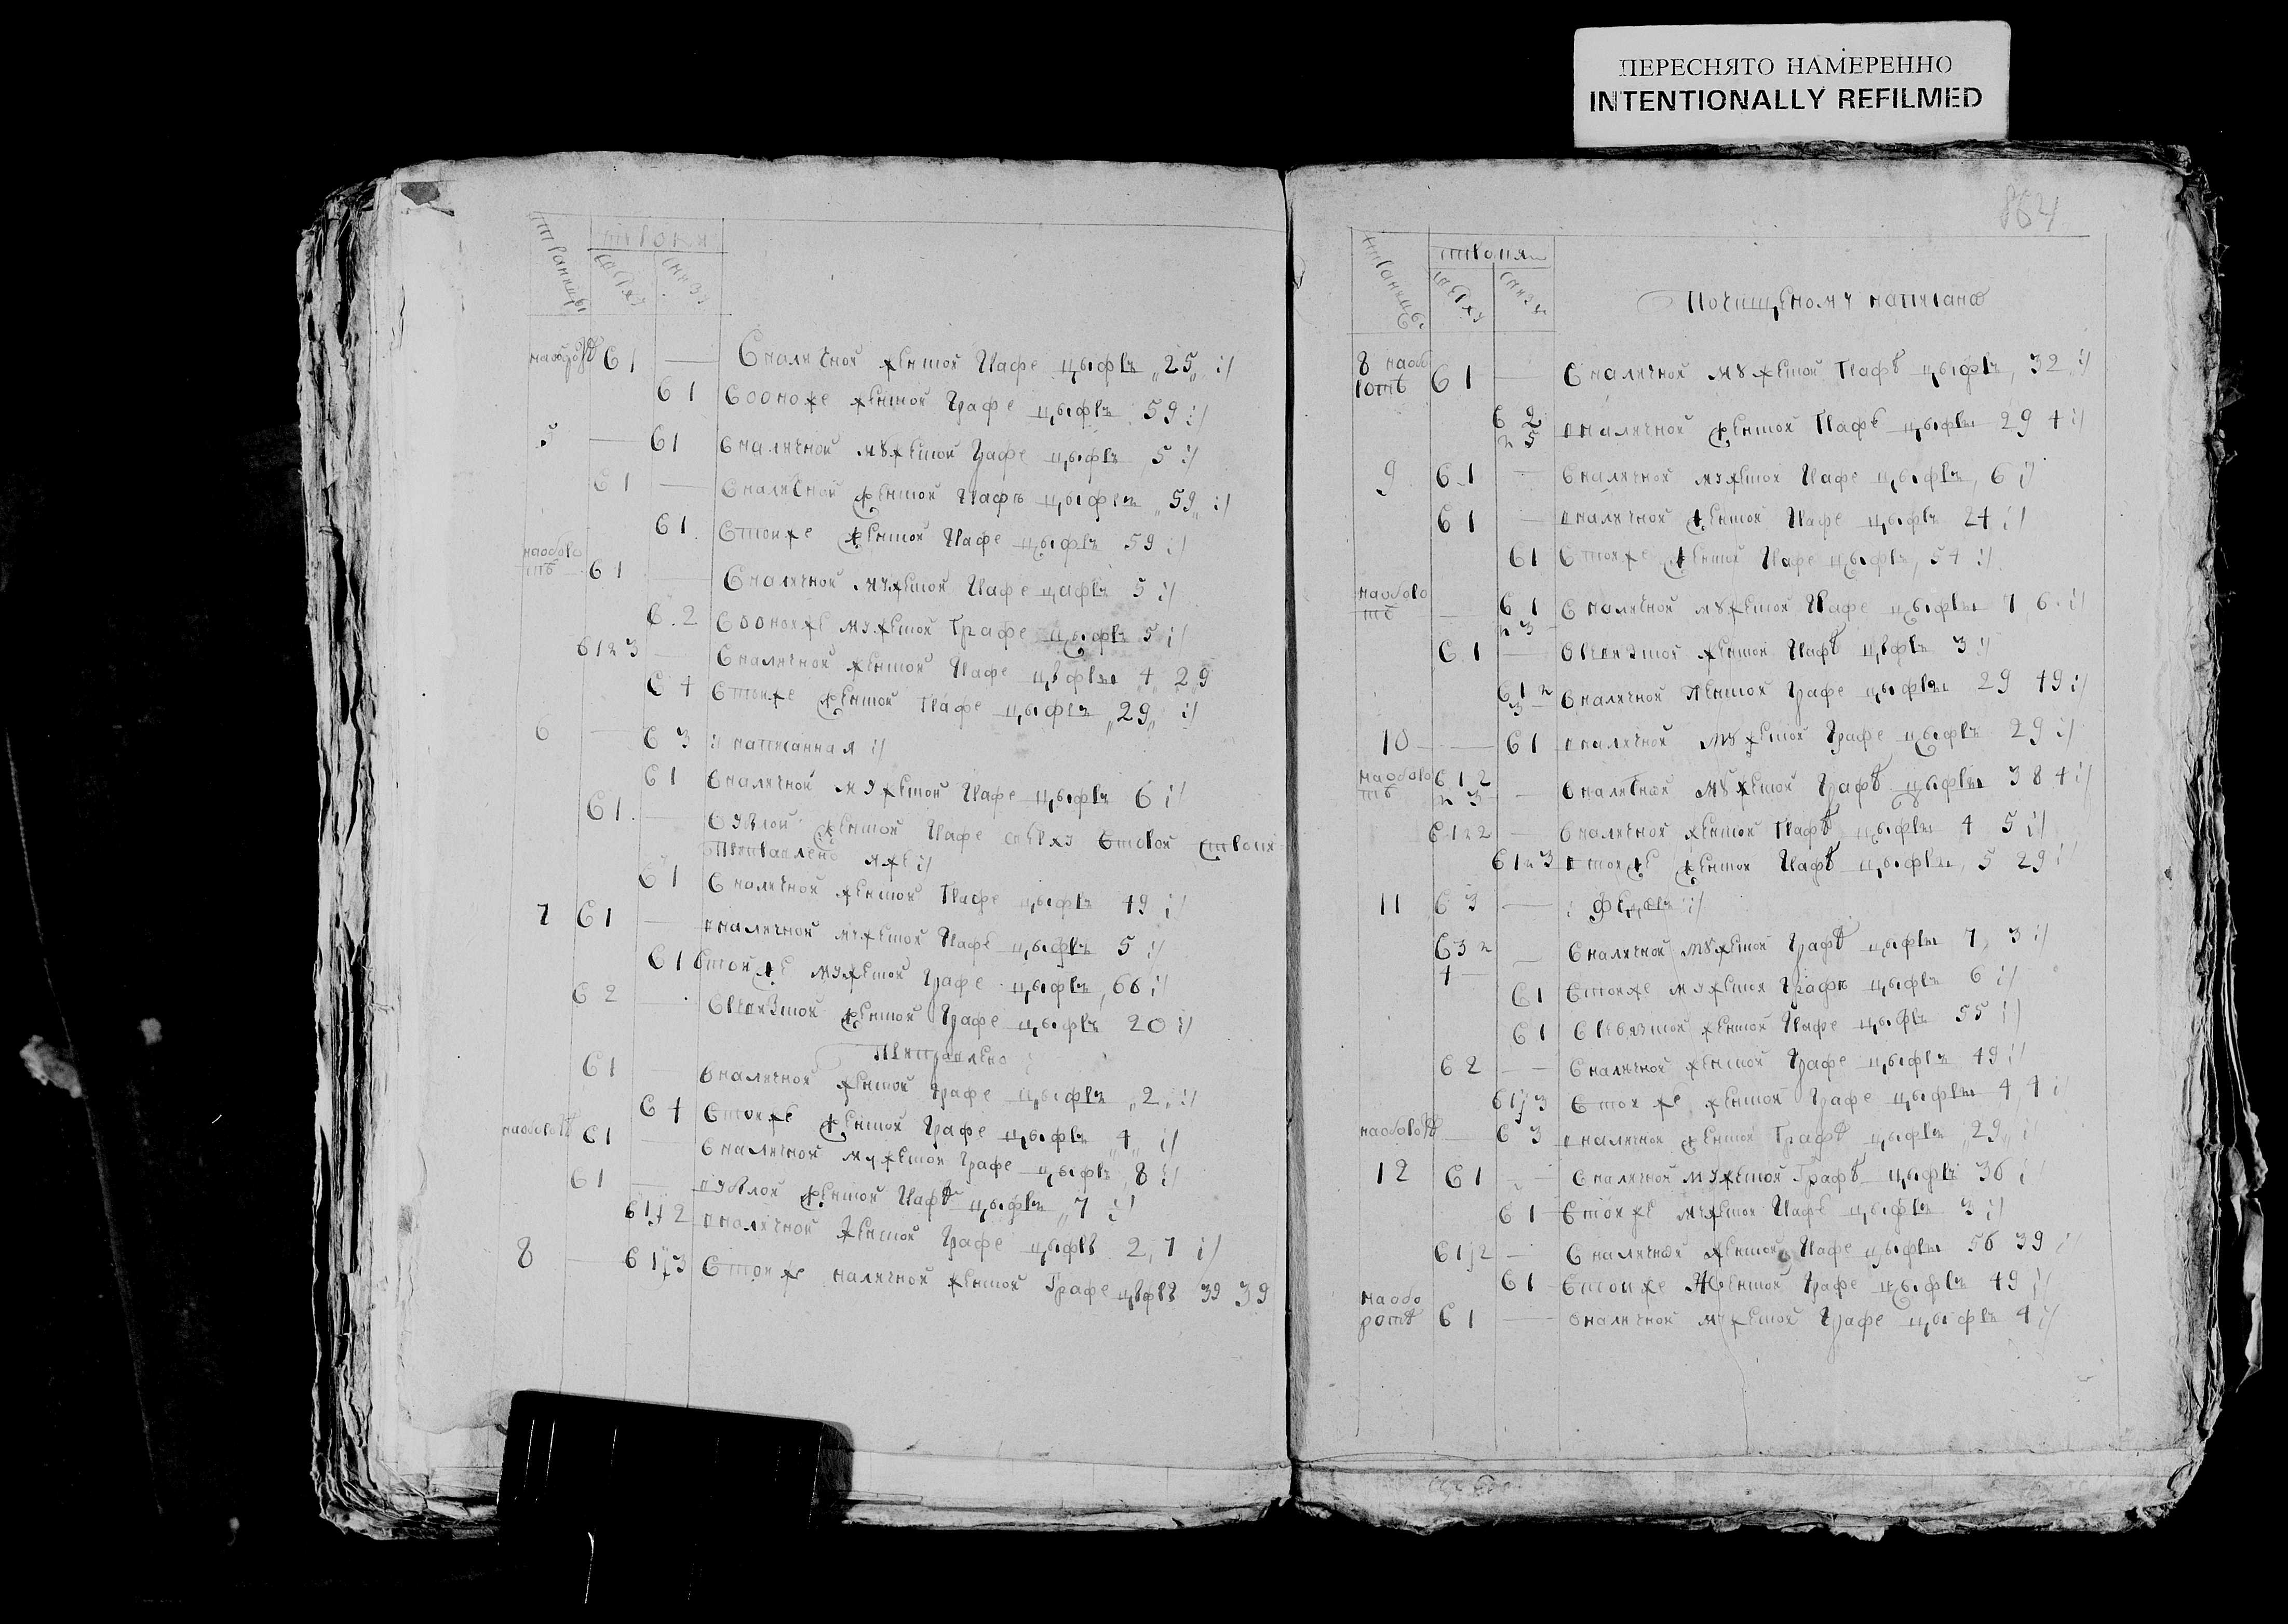 ПЕРЕСНЯТО НАМЕРЕННО
INTENTIONALLY REFILMED
страницы
строки
сверху
снизу
наоборотѣ в 1 — в наличной женской графе цыфръ „25„ :/
в 1 в оной же женской графе цыфръ 59 :/
5 — в 1 в наличной мужеской графе цыфръ 5 :/
в 1 — в наличной женской графѣ цыфръ „59„ :/
в 1 в той же женской графе цыфръ 59 :/
наоборотѣ в 1 — в наличной мужеской графе цыфръ 5 :/
в 2 в оной же мужеской графе цыфръ 5 :/
в 1 и 3 — в наличной женской графе цыфры „4„ 29
в 4 в той же женской графе цыфръ „29„ :/
6 — в 3 :/ написанная :/
в 1 в наличной мужеской графе цыфръ 6 :/
в 1 — в женской графе сверху второй строки
приправлено
в 1 в наличной женской графе цыфръ 49 :/
7 в 1 — в наличной мужеской графе цыфръ 5 :/
в 1 в той же мужеской графе цыфръ 66 :/
в 2 — женской графе цыфръ 20 :/
приправлено
в 1 — в наличной женской графе цыфръ „2„ :/
в 4 в той же женской графе цыфръ „4„ :/
наоборотѣ в 1 — в наличной мужеской графе цыфръ 8 :/
в 1 — женской графѣ цыфръ „7 :/
в 1 и 2 в наличной женской графе цыфръ 2, 7 :/
8 — в 1 и 3 в той же наличной женской графе цыфръ 39 39
страницы
строки
сверху
снизу
Почищеному написано
8 наоборотѣ в 1 — в наличной мужеской графѣ цыфръ, 32 :/
в 2 и 5 в наличной женской графѣ цыфры 29 4 :/
9 в 1 — в наличной мужеской графе цыфръ, 6 :/
в 1 — в наличной женской графе цыфръ 24 :/
в 1 в той же женской графе цыфръ, 54 :/
наоборотѣ — в 1 и 3 в наличной мужеской графе цыфры 7, 6 :/
в 1 — женской графѣ цыфръ 3 :/
в 1 и 3 в наличной женской графе цыфры 29 49 :/
10 — в 1 в наличной мужеской графе цыфръ 29 :/
наоборотѣ в 1 2 и 3 — в наличной мужеской графѣ цыфры 3 8 4 :/
в 1 и 2 — в наличной женской графѣ цыфры 4 5 :/
в 1 и 3 в той же женской графѣ цыфры, 5 29 :/
11 в 3 —
в 3 и 4 — в наличной мужеской графѣ цыфры 7, 3 :/
в 1 в той же мужеской графѣ цыфръ 6 :/
в 1 женской графе цыфръ 55 :/
в 2 — в наличной женской графе цыфръ 49 :/
в 1 и 3 в той же женской графе цыфры 4, 4 :/
наоборотѣ — в 3 в наличной женской графѣ цыфръ „29„ :/
12 в 1 — в наличной мужеской графѣ цыфръ 36 :/
в 1 в той же мужеской графѣ цыфръ 3 :/
в 1 и 2 — в наличной женской графе цыфры 56 39 :/
в 1 в той же женской графе цыфръ 49 :/
наоборотѣ в 1 — в наличной мужеской графе цыфръ 4 :/